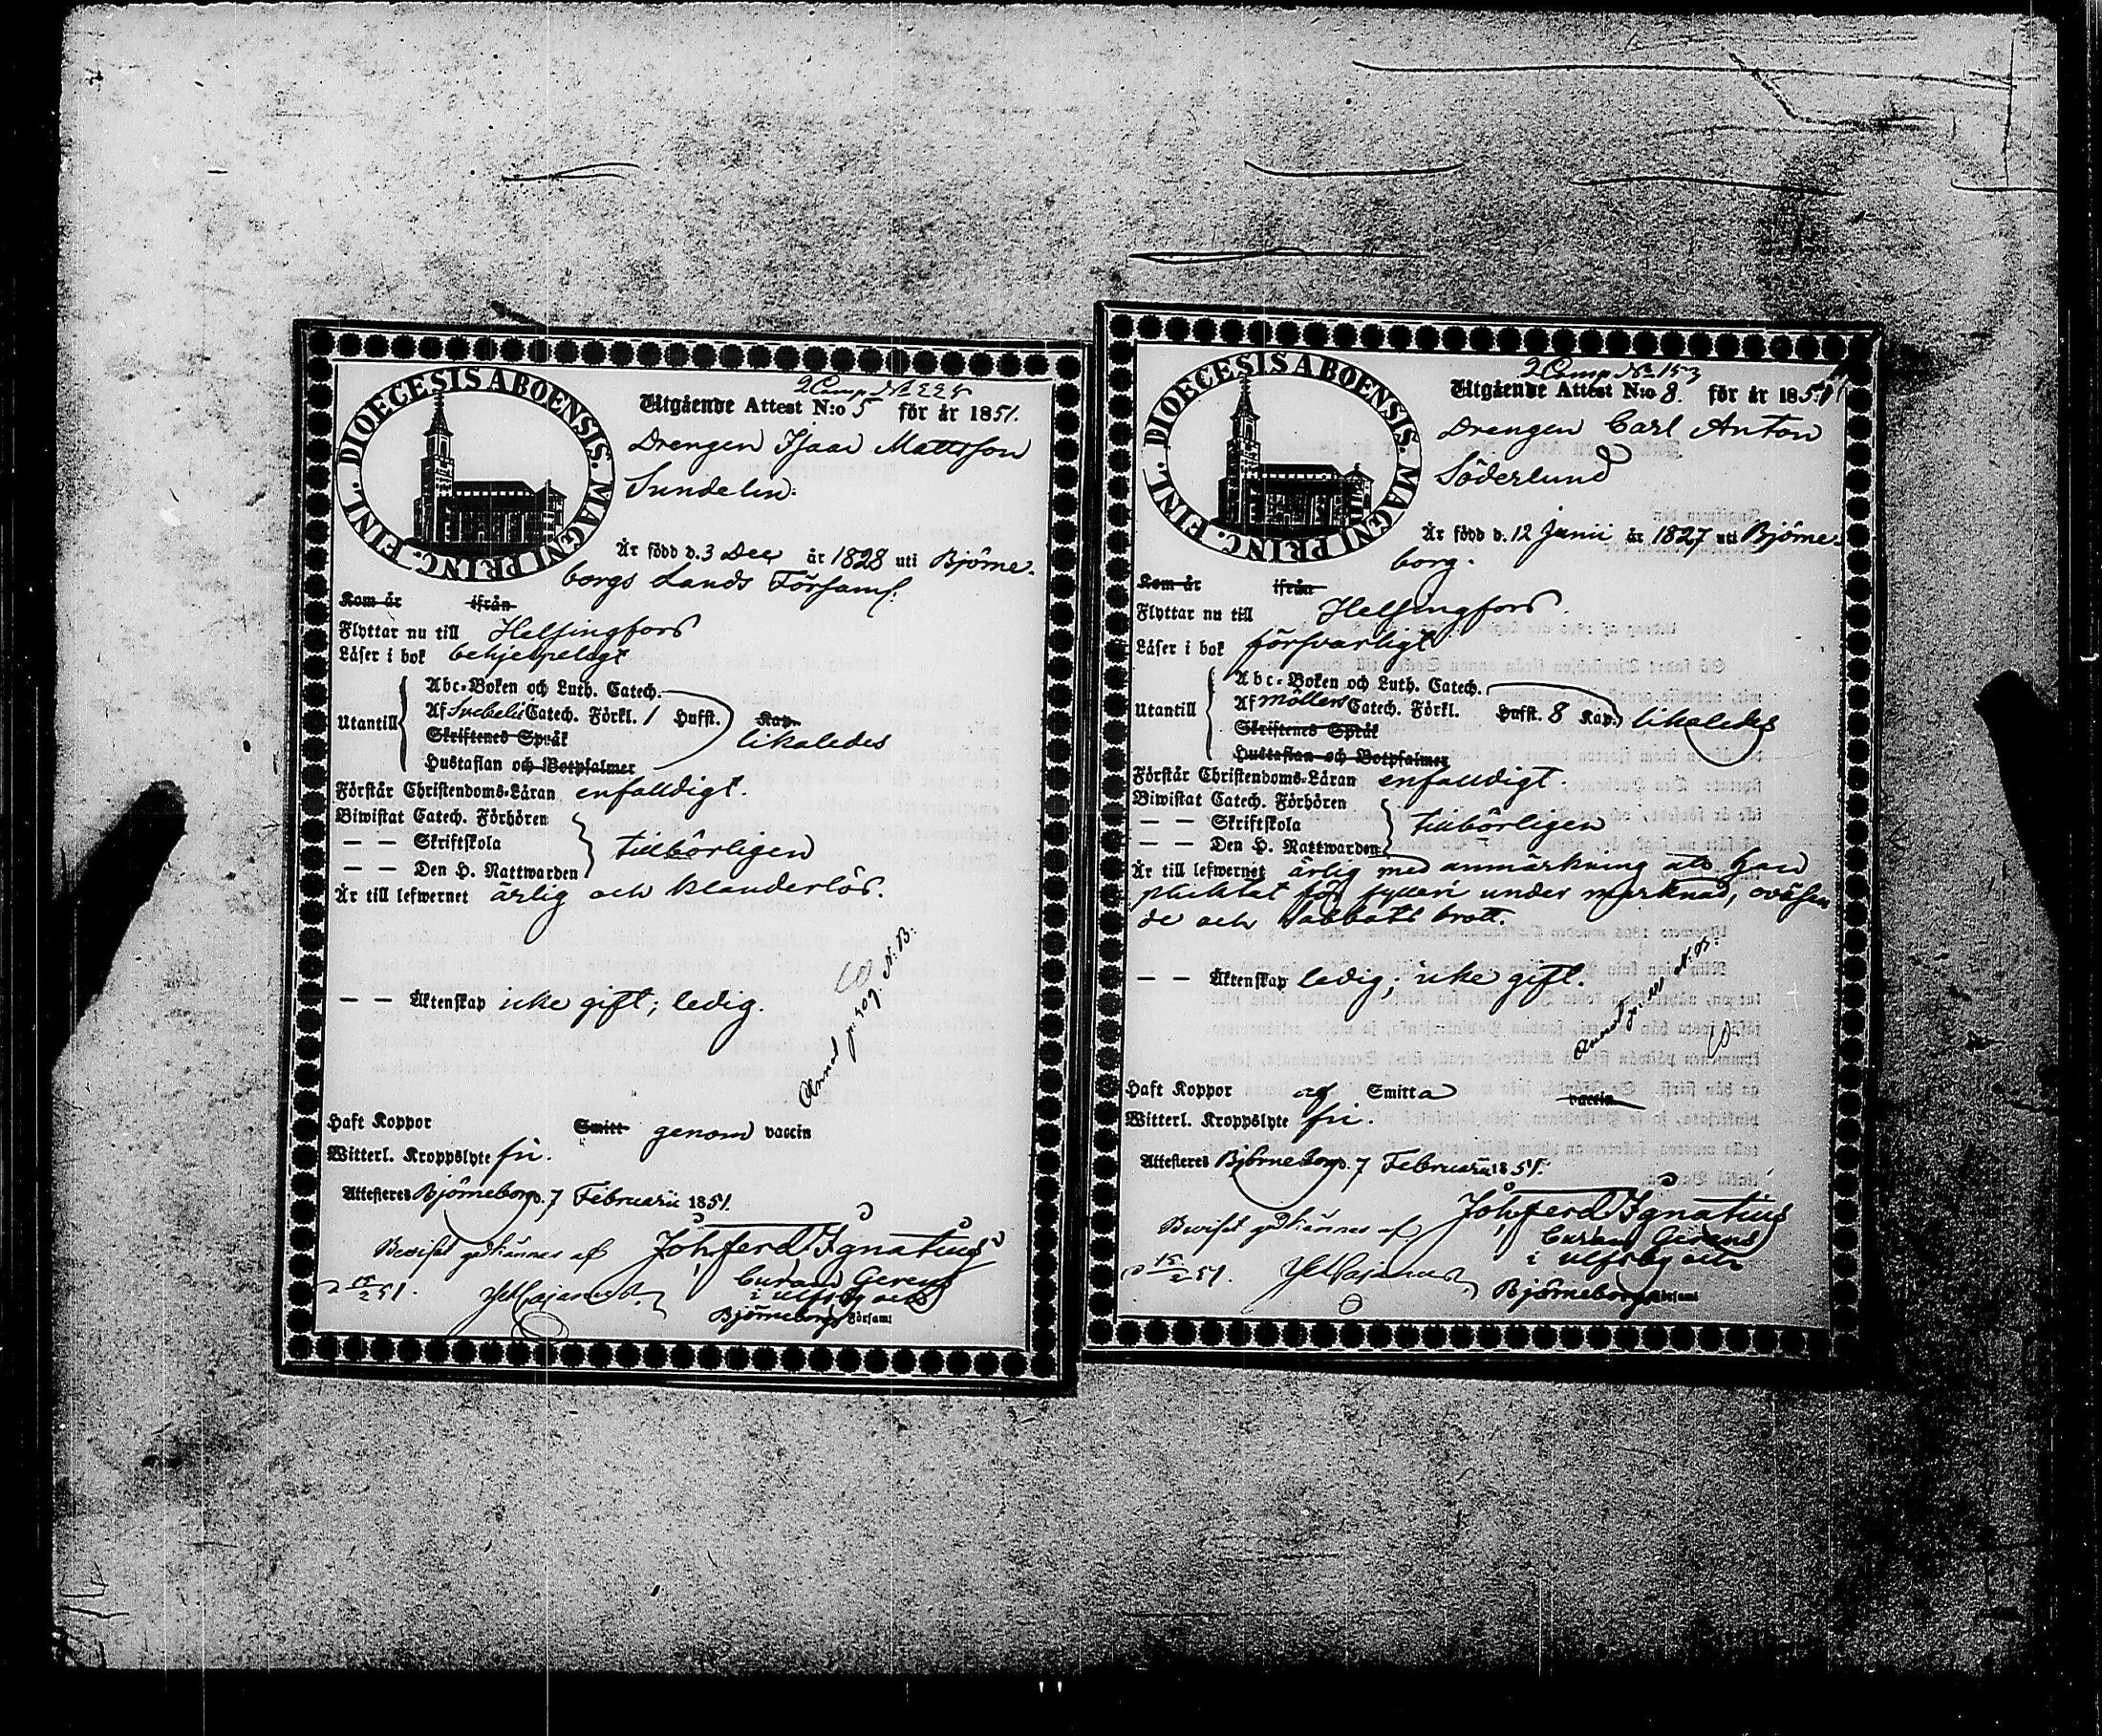 DIOECESIS ABOENSIS. MAGNI PRINC. FINL.
2 Comp No 225
Utgående Attest N:o 5 för år 1851.
Drengen Isaac Mattsson
Sundelin.
Är född d. 3 Dec år 1828 uti Björne-
borgs Lands Församl.
Kom år ifrån
Flyttar nu till Helsingfors
Läser i bok behjelpeligt
Abc-Boken och Luth. Catech.
Utantill Af Svebelii Catech. Förkl. 1 Hufst. Kap. likaledes
Skriftenes Språk
Hustaflan och Botpsalmer
Förstår Christendoms-Läran enfaldigt.
Biwistat Catech. Förhören
— — Skriftskola tillbörligen
— — Den H. Nattwarden
Är till lefwernet ärlig och klanderlös.
— — Äktenskap icke gift; ledig.
Annot p. 209. N.B:
Haft Koppor Smitt genom vaccin
Witterl. Kroppslyte fri.
Attesteras Björneborg d. 7 Februarii 1851.
Joh. Ferd. Ignatius
Beviset godkännes af
Curam Gerens
i Ulfsby och
Björneborgs Församl
DIOECESIS ABOENSIS. MAGNI PRINC. FINL.
2 Comp No 153
Utgående Attest N:o 8. för år 1851
Drengen Carl Anton
Söderlund
Är född d. 12 Junii år 1827 uti Björne-
borg.
Kom år ifrån
Flyttar nu till Helsingfors.
Läser i bok försvarligt
Abc-Boken och Luth. Catech.
Utantill Af Möllers Catech. Förkl. Hufst. 8 Kap. likaledes
Skriftenes Språk
Hustaflan och Botpsalmer
Förstår Christendoms-Läran enfaldigt.
Biwistat Catech. Förhören
— — Skriftskola tillbörligen
— — Den H. Nattwarden
Är till lefwernet ärlig med anmärkning att han
pliktat för fylleri under marknad, oväsen-
de och sabbats brott.
— — Äktenskap ledig; icke gift.
Annot p. N.B:
Haft Koppor af Smitta vaccin
Witterl. Kroppslyte fri.
Attesteras Björneborg d. 7 Februarii 1851.
Joh. Ferd. Ignatius
Beviset godkännes af
Curam Gerens
i Ulfsby och
Björneborgs Församl